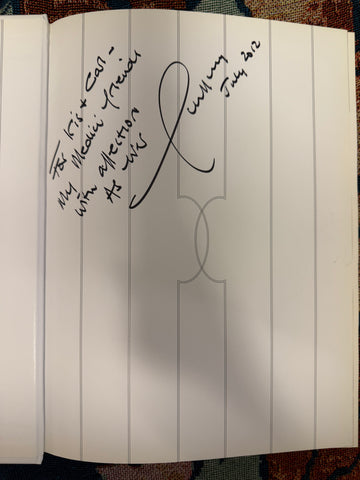 For Kis + Carl -
My Medici friends
with affection
As ever
July 2012